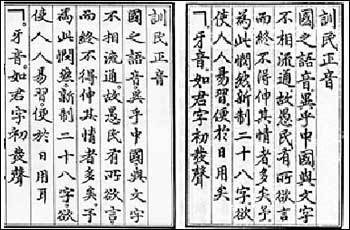 訓民正音
國之語音。異乎中國。與文字
不相流通。故愚民有所欲言
而終不得伸其情者多矣。予
為此憫然。新制二十八字。欲
使人人易習。便於日用矣
ㄱ。牙音。如君字初發聲
訓民正音
國之語音。異乎中國。與文字
不相流通。故愚民有所欲言。
而終不得伸其情者多矣。予
為此憫然。新制二十八字。欲
使人人易習。便於日用耳
ㄱ。牙音。如君字初發聲